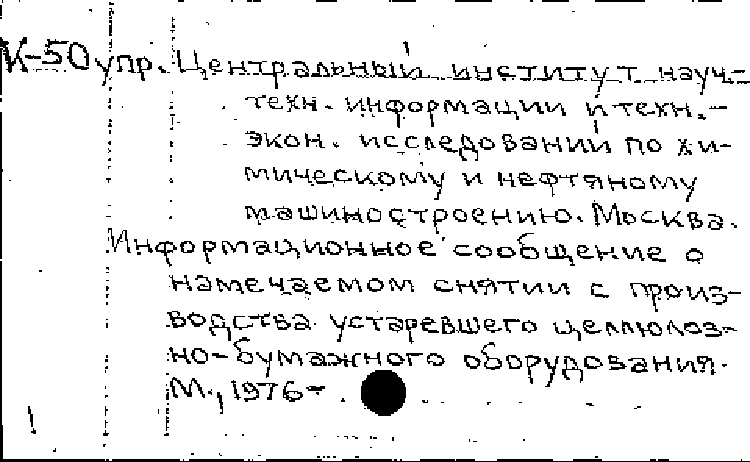 К-50 упр. Центральный институт науч.-
техн. информации и техн.-
экон. исследований по хи-
мическому и нефтяному
машиностроению. Москва.
Информационное сообщение о
намечаемом снятии с произ-
водства устаревшего целлюлоз-
но-бумажного оборудования.
М., 1976-